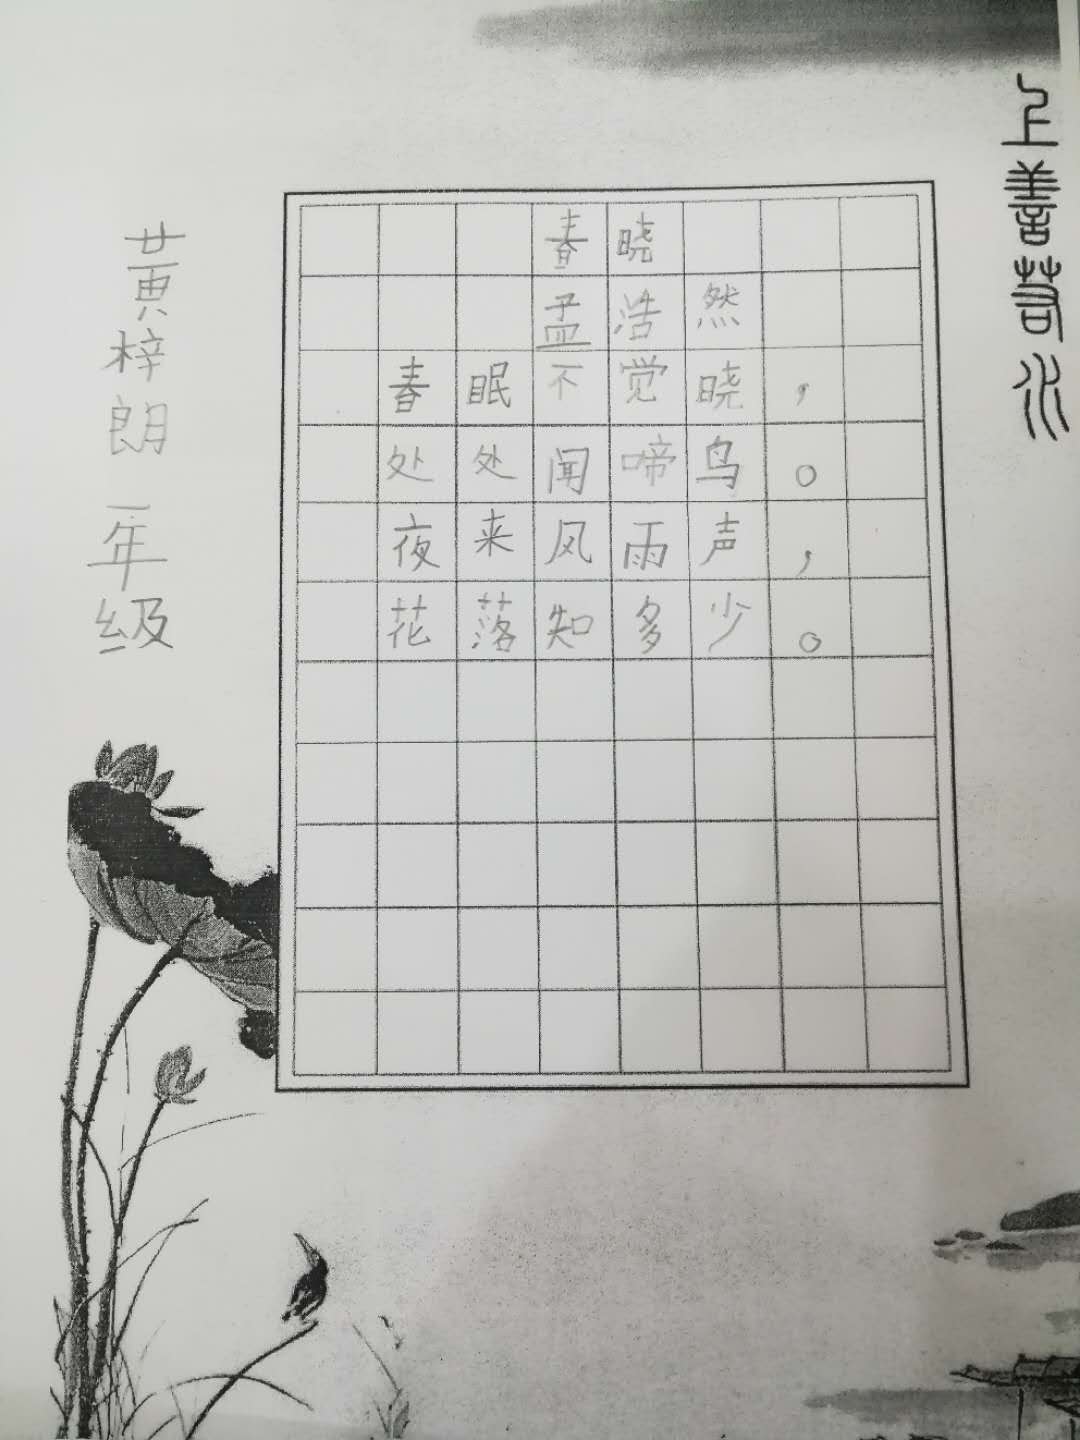 上善若水
春晓
孟浩然
春眠不觉晓，
处处闻啼鸟。
夜来风雨声，
花落知多少。
黄梓朗 一年级